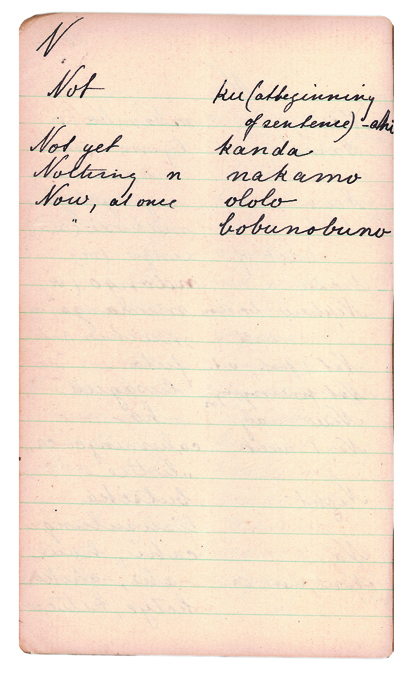 N
Not ku (at beginning
of sentence) -ahi
Not yet kanda
Nothing n nakamo
Now, at once ololo
" bobunobuno